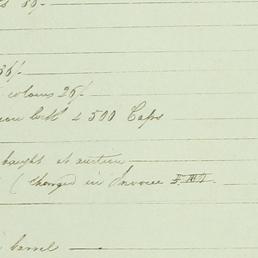 50/-
35/-
colours 25/-
lock & 500 Caps
bought at auction
(Charged in Invoice
barrel